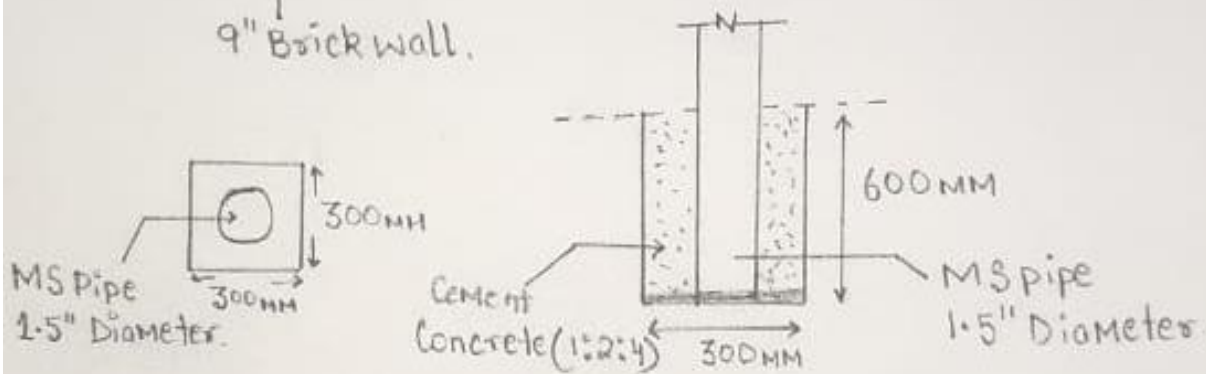 9" Brick wall.
N
600MM
300MM
MS Pipe
1.5" Diameter.
300MM
Cement
Concrete (1:2:4)
300MM
MS pipe
1.5" Diameter.